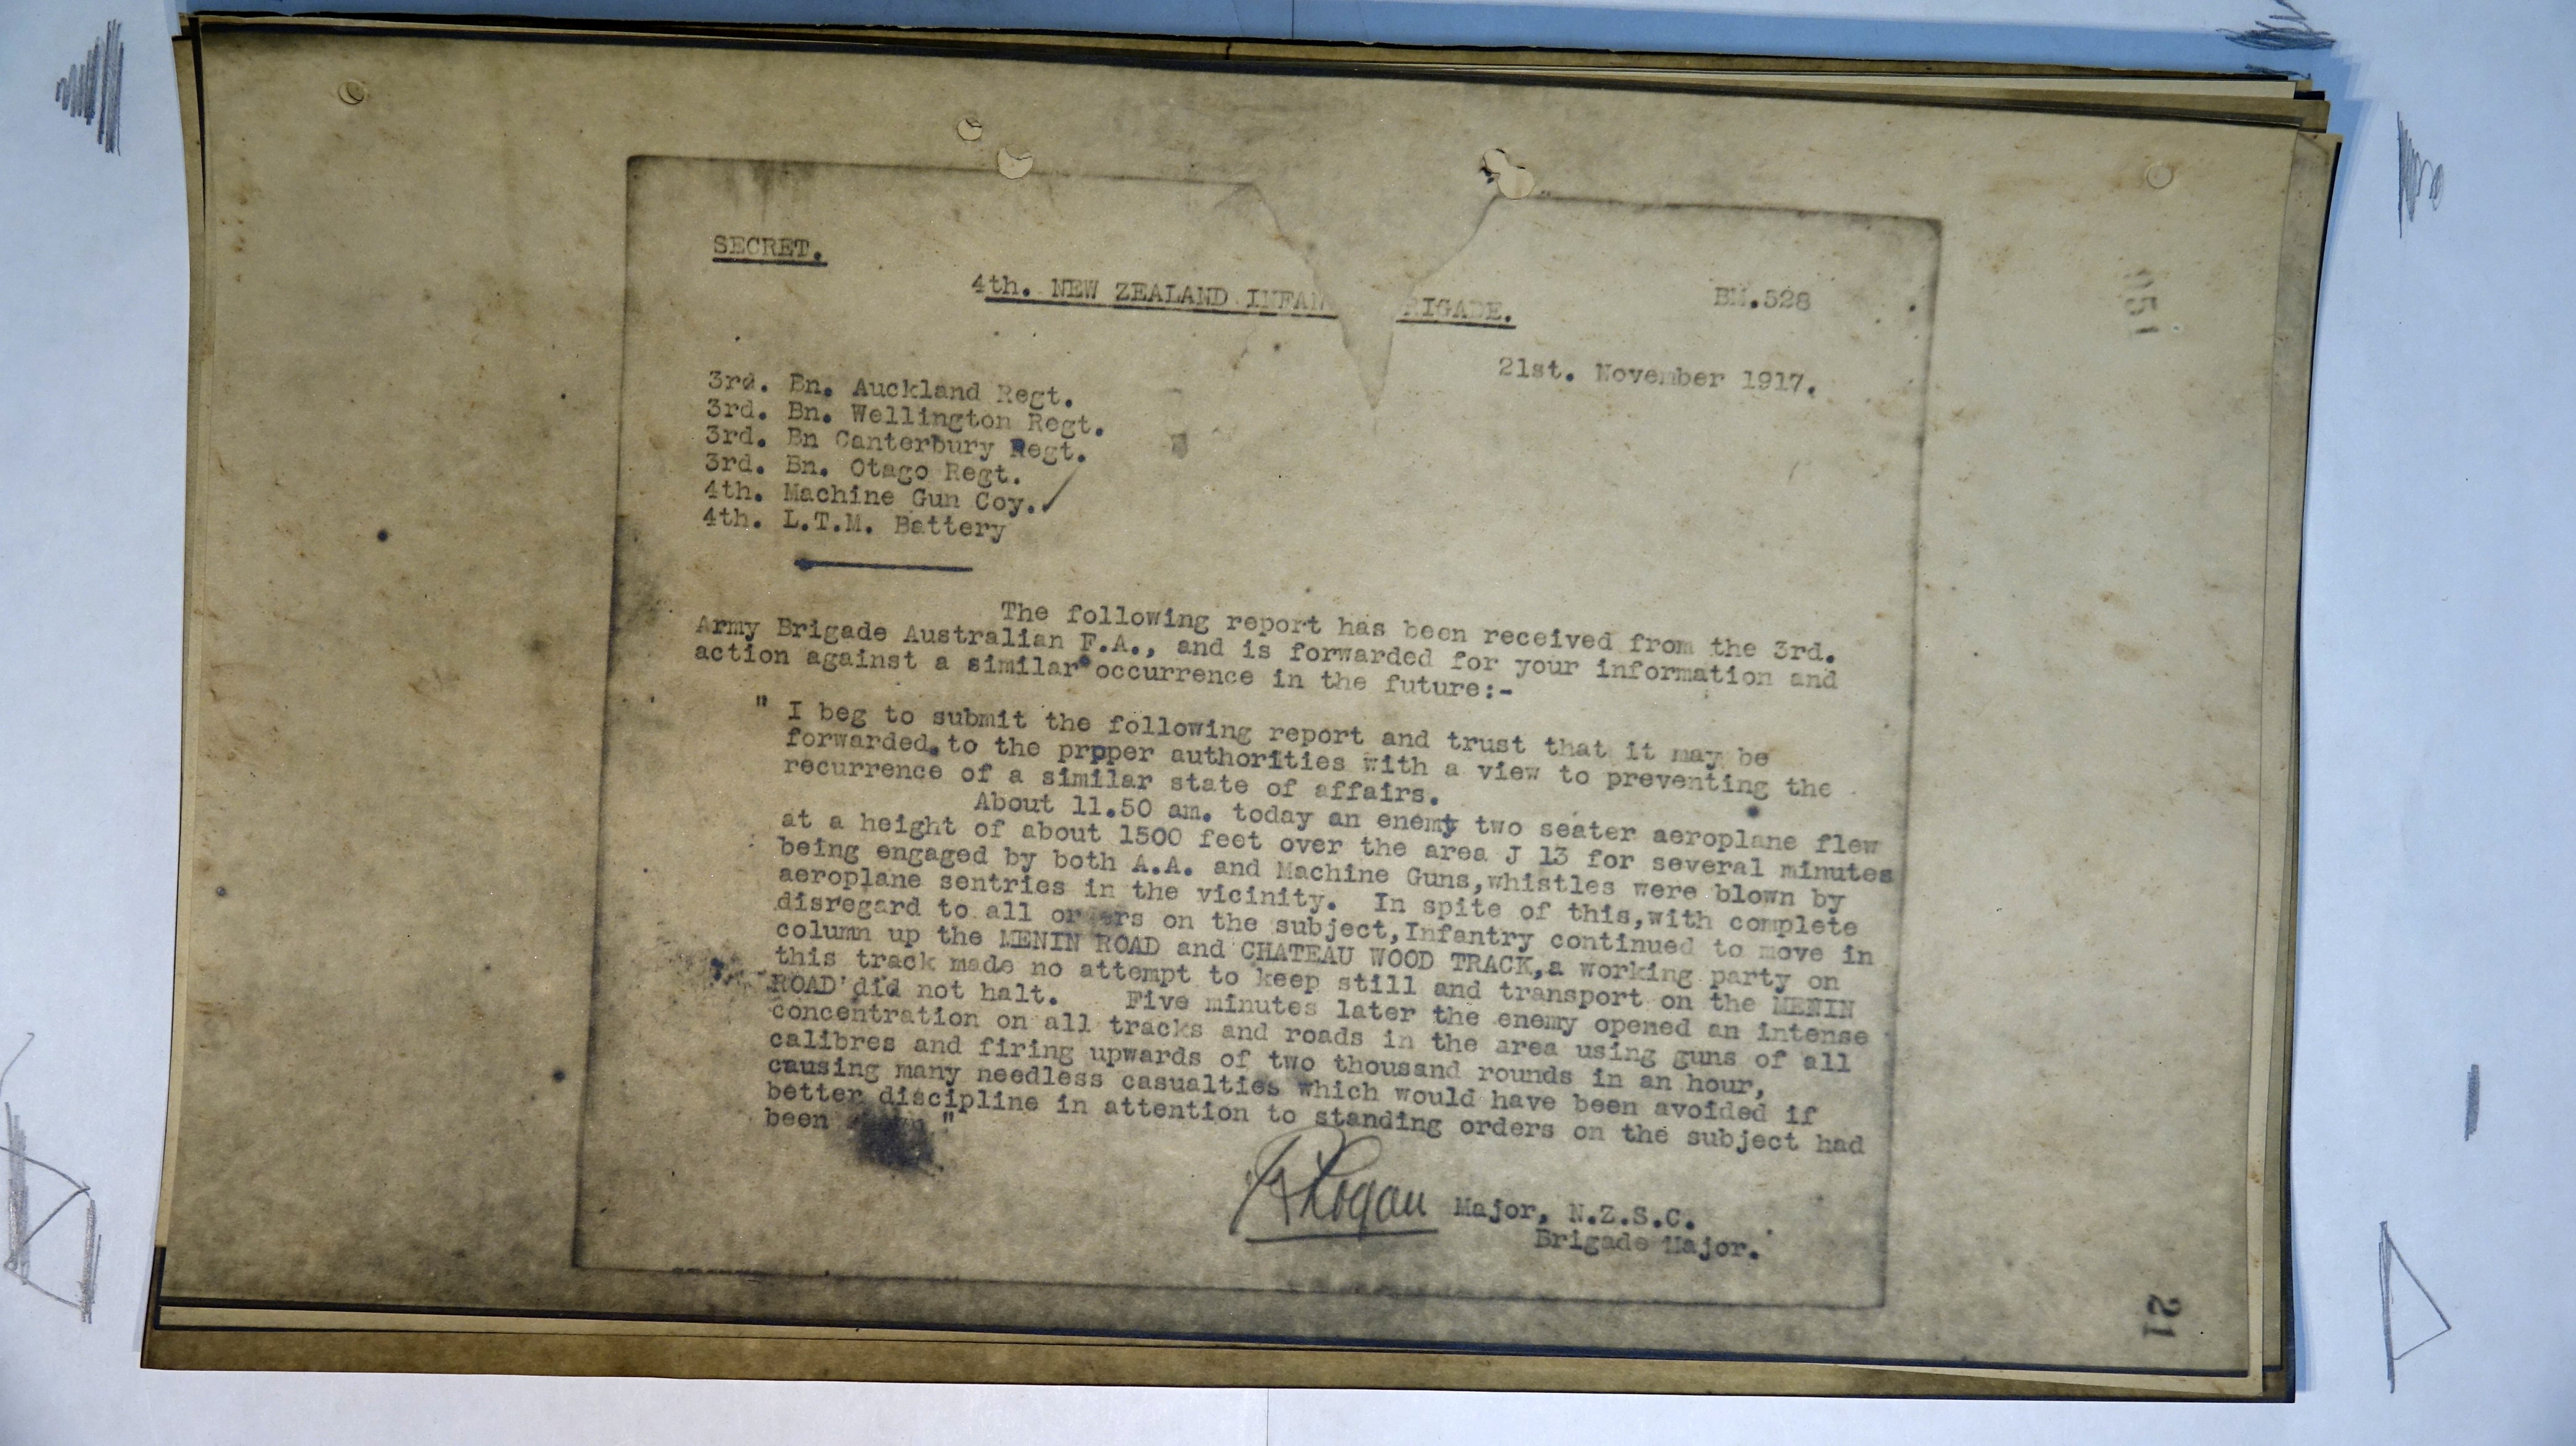 SECRET.
4th. NEW ZEALAND INFAN RIGADE.
BM.528
21st. November 1917.
3rd. Bn. Auckland Regt.
3rd. Bn. Wellington Regt.
3rd. Bn Canterbury Regt.
3rd. Bn. Otago Regt.
4th. Machine Gun Coy.
4th. L.T.M. Battery
The following report has been received from the 3rd.
Army Brigade Australian F.A., and is forwarded for your information and
action against a similar occurrence in the future:-
" I beg to submit the following report and trust that it may be
forwarded to the prpper authorities with a view to preventing the
recurrence of a similar state of affairs.
About 11.50 am. today an enemy two seater aeroplane flew
at a height of about 1500 feet over the area J 13 for several minutes
being engaged by both A.A. and Machine Guns,whistles were blown by
aeroplane sentries in the vicinity. In spite of this,with complete
disregard to all orders on the subject,Infantry continued to move in
column up the MENIN ROAD and CHATEAU WOOD TRACK,a working party on
this track made no attempt to keep still and transport on the MENIN
ROAD did not halt. Five minutes later the enemy opened an intense
concentration on all tracks and roads in the area using guns of all
calibres and firing upwards of two thousand rounds in an hour,
causing many needless casualties which would have been avoided if
better discipline in attention to standing orders on the subject had
been "
Rogan Major, N.Z.S.C.
Brigade Major.
051
21